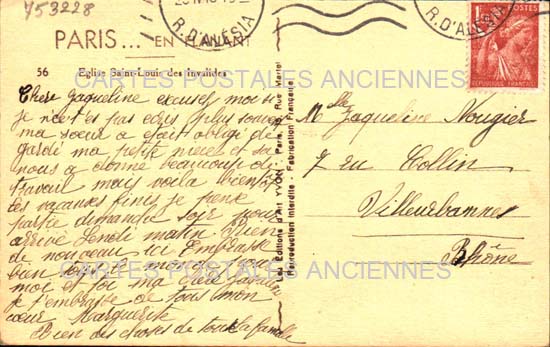 753228
R. D'ALÉSIA
R. D'ALÉSIA
POSTES
REPUBLIQUE FRANÇAISE
PARIS... EN FLANANT
56 Eglise Saint-Louis des Invalides
Chere Jaqueline excuses moi si
je n'est et pas ecris plus souvent
ma soeur a etait obligé de
gardé ma petite niece et sa
nous a donné beaucoup de
travail mais voila bientot
les vacances finis je pense
partir dimanche soir pour
arrivé Lundi matin. Rien
de nouveau ici Embrasse
bien
moi et toi ma chere Jaqueline
je t'embrasse de tous mon
cœur Marguerite
Bien des choses de toute la famille
Editions d'Art YVON, Paris, Rue Martel
Reproduction Interdite - Fabrication Française
Mlle Jaqueline Nougier
7 rue Collin
Villeurbannes
Rhône
CARTES POSTALES ANCIENNES
CARTES POSTALES ANCIENNES